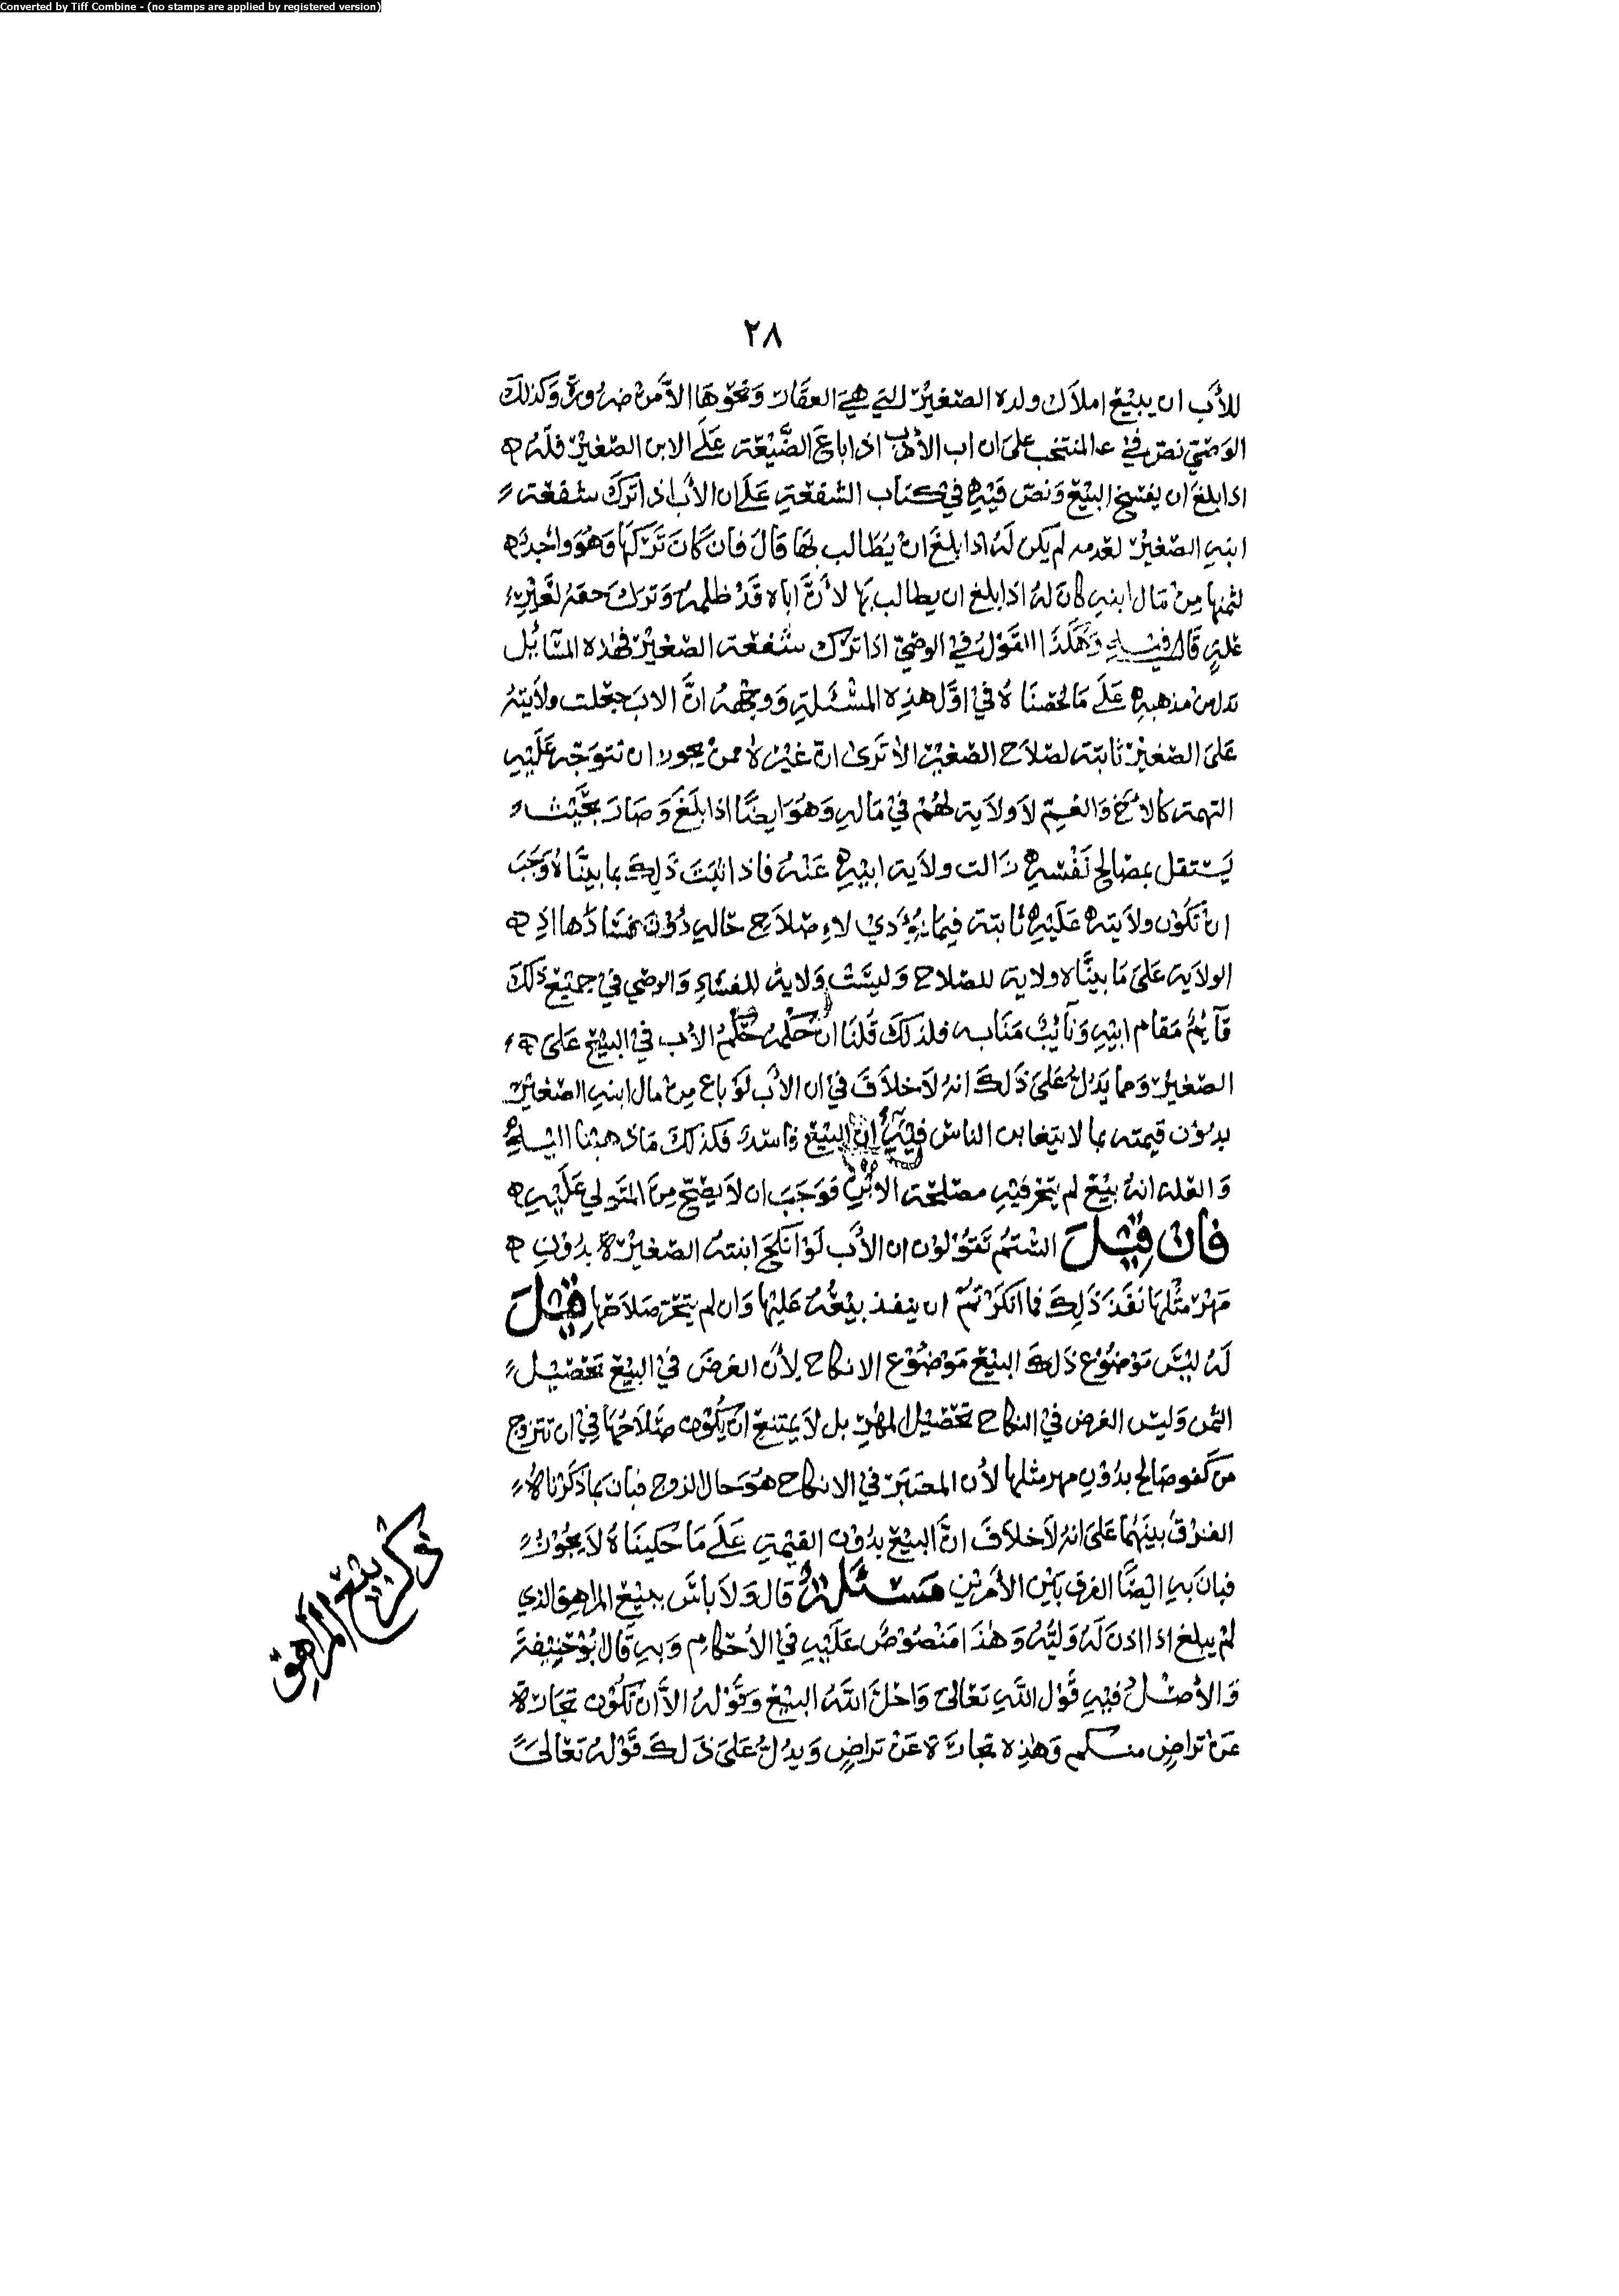 Converted by Tiff Combine - (no stamps are applied by registered version)
٢٨
للأب ان يبيع املاك ولده الصغير التي هي العقار ونحوها الا من ضرورة وكذلك
الوصي نص في المنتخب على ان اب الأب اذا باع الضيعة على الابن الصغير فله
اذا بلغ ان يفسخ البيع ونص فيه في كتاب الشفعة على ان الأب اذا ترك شفعة
ابنه الصغير لعدمه لم يكن له اذا بلغ ان يطالب بها قال فان كان تركها وهو واجد
لثمنها من مال ابنه كان له اذا بلغ ان يطالب بها لأن اباه قد ظلمه وترك حقه لغير
علة قال فيه وهكذا القول في الوصي اذا ترك شفعة الصغير فهذه المسائل
تدل من مذهبه على ما لخصناه في اول هذه المسئلة ووجهه ان الاب جعلت ولايته
على الصغير ثابتة لصلاح الصغير الا ترى ان غيره ممن يجوز ان تتوجه عليه
التهمة كالأخ والعم لا ولاية لهم في ماله وهو ايضا اذا بلغ وصار بحيث
يستقل بمصالح نفسه زالت ولاية ابيه عنه فاذا ثبت ذلك بما بيناه وجب
ان تكون ولايته عليه ثابتة فيما يؤدي لاصلاح حاله دون فسادها اذ
الولاية على ما بيناه ولاية للصلاح وليست ولاية للفساد والوصي في جميع ذلك
قائم مقام ابيه ونائب منابه فلذلك قلنا ان حكمه حكم الأب في البيع على
الصغير ومما يدل على ذلك انه لا خلاف في ان الأب لو باع من مال ابنه الصغير
بدون قيمته بما لا يتغابن الناس فيه ان البيع فاسد فكذلك ما ذهبنا اليه
والعلة انه بيع لم يتحر فيه مصلحة الابن فوجب ان لا يصح من المتولي عليه
فان قيل الستم تقولون ان الأب لو انكح ابنته الصغيرة بدون
مهر مثلها نفذ ذلك فما انكرتم ان ينفذ بيعه عليها وان لم يتحر صلاحها قيل
له ليس موضوع ذلك البيع موضوع الانكاح لأن الغرض في البيع تحصيل
الثمن وليس الغرض في النكاح تحصيل المهر بل لا يمتنع ان يكون صلاحها في ان تتزوج
من كفو صالح بدون مهر مثلها لأن المعتبر في الانكاح هو حال الزوج فبان بما ذكرناه
الفرق بينهما على انه لا خلاف ان البيع بدون القيمة على ما حكيناه لا يجوز
فبان به ايضا الفرق بين الأمرين مسئلة قال ولا بأس ببيع المراهق الذي
لم يبلغ اذا اذن له وليه وهذا منصوص عليه في الأحكام وبه قال ابو حنيفة
والأصل فيه قول الله تعالى واحل الله البيع وقوله الا ان تكون تجارة
عن تراض منكم وهذه تجارة عن تراض ويدل على ذلك قوله تعالى
ذكر بيع المراهق